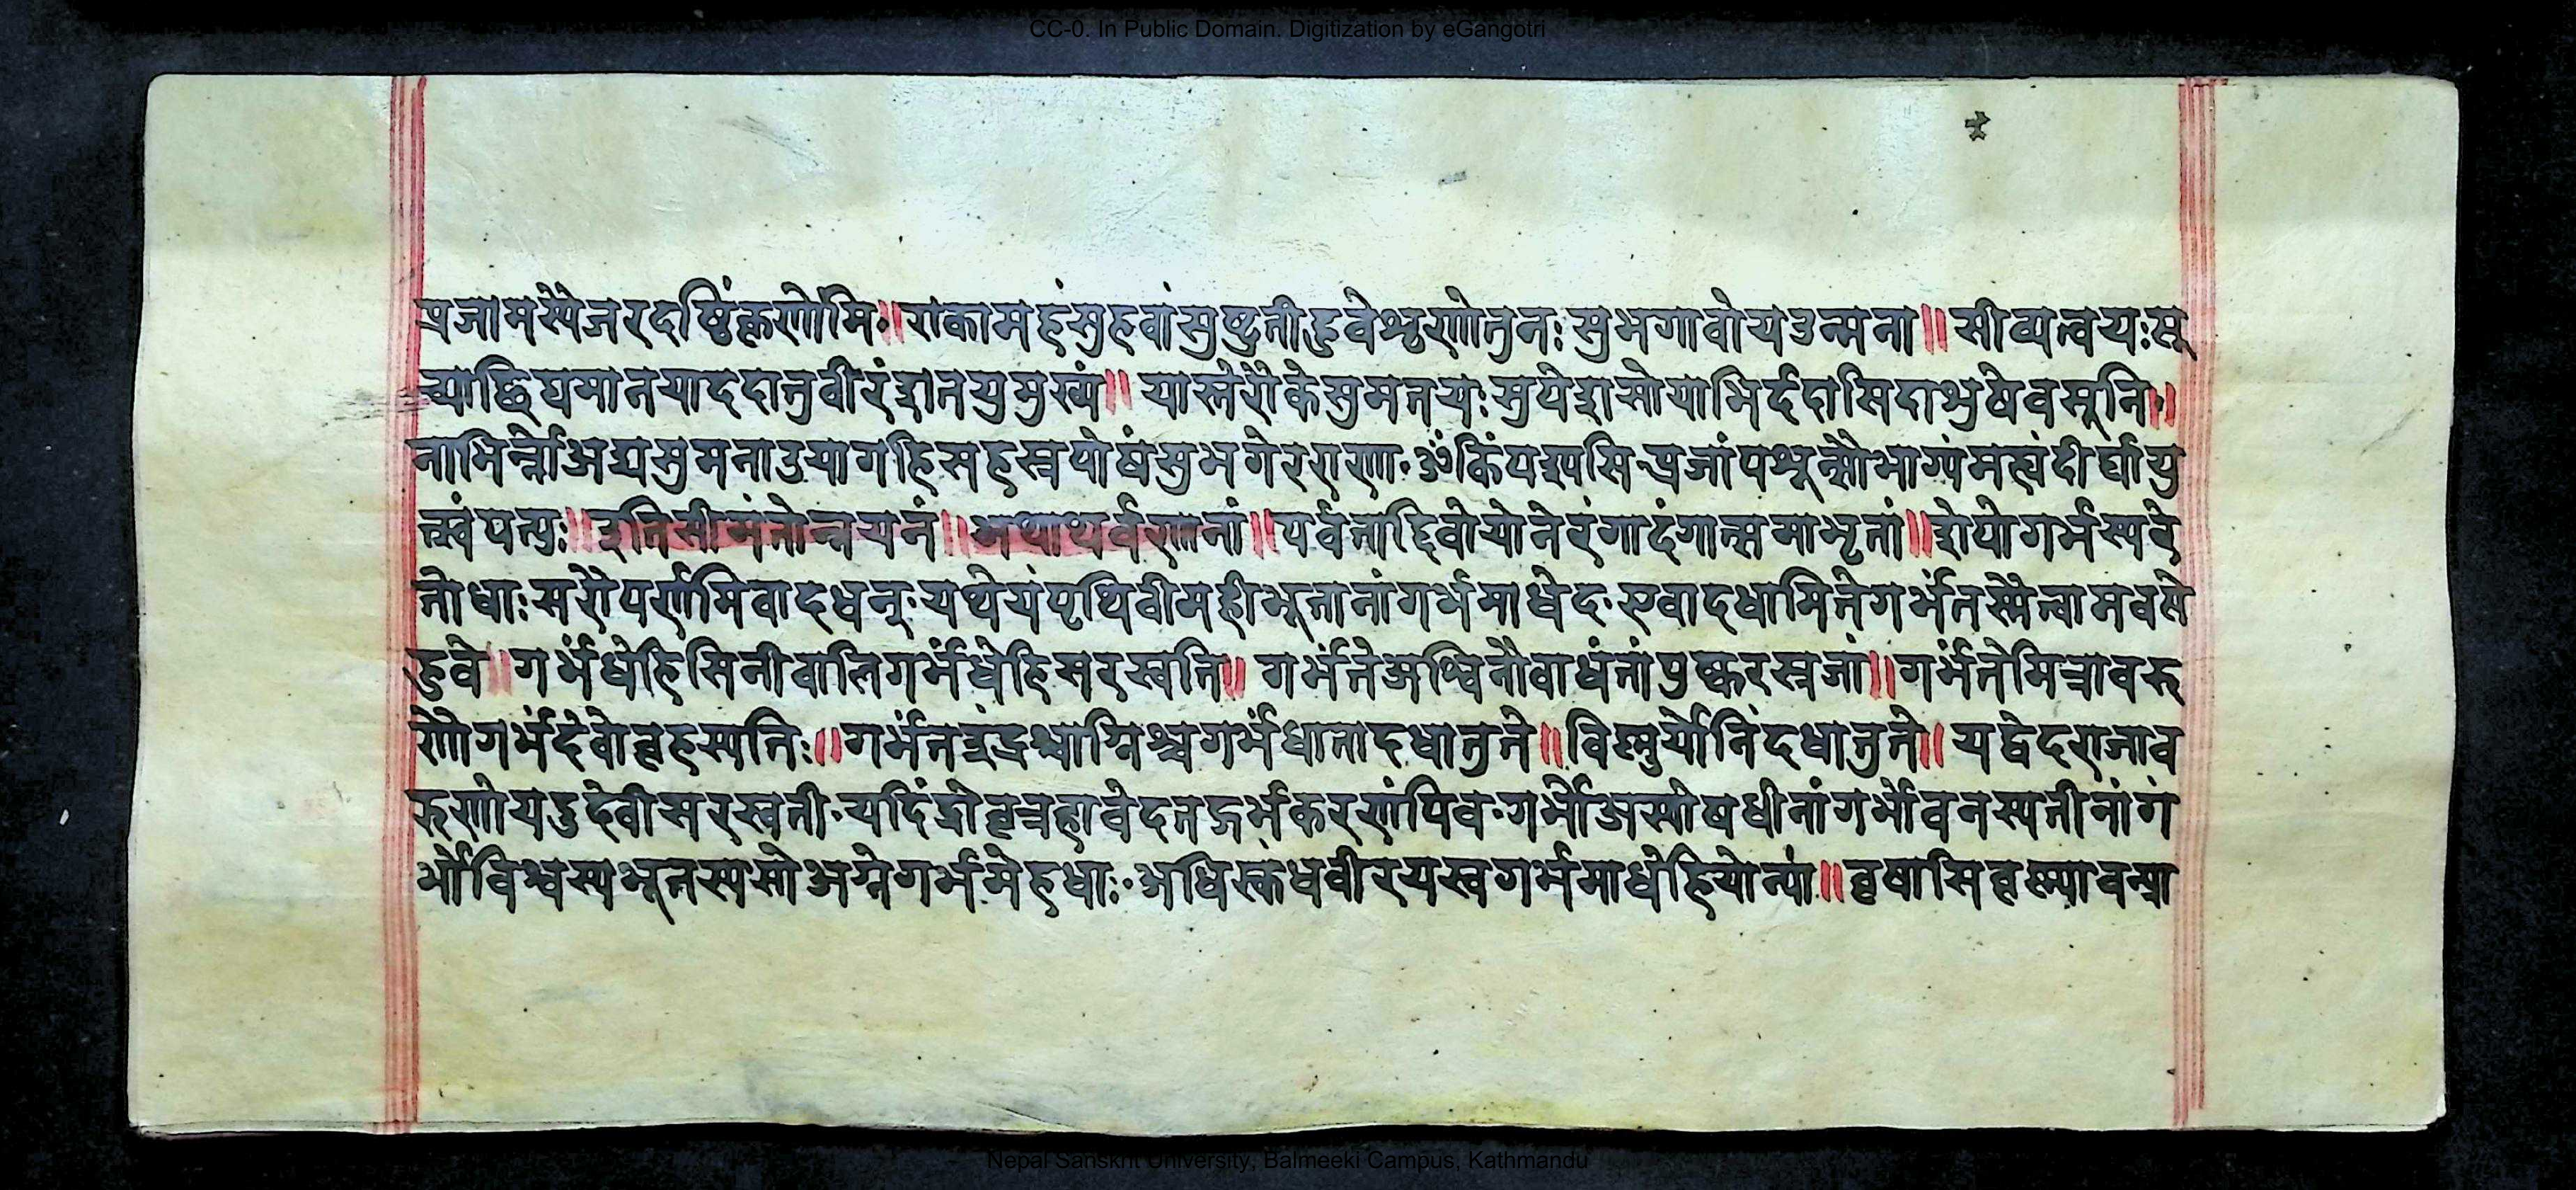 CC-0. In Public Domain. Digitization by eGangotri
प्रजामस्येजरदष्टिंकृणोमि॰॥राकामहंसुहवांसुष्टुतीहुवेशृणोतुनः सुभगावोयउत्मना॥सीव्यत्वयःसू
च्याछिद्यमानयाददातुवीरंशतयुमुख्यं॥यास्तेराेकेसुमतयःसुपेशसोयाभिर्ददासिदाशुषेवसूनि॰॥
ताभिर्न्नोअद्यसुमनाउयागहिसहस्रपोषंसुभगेरराणा॰ॐकिंपश्यसि॰प्रजांपशून्सौभाग्यंमह्यंदीर्घायु
त्स्वंपत्युः॥इतिसीमंतोन्नयनं॥अथाथर्वणानां॥पर्वताद्दिवोयोनेरंगादंगात्समाभृतां॥शेपोगर्भस्यरे
तोधाःसरोपर्णमिवादधत्॰यथेयंपृथिवीमहीभूतानांगर्भमाधेद॰एवादधामितेगर्भंतस्मैत्वामवसे
हुवे॥गर्भंधेहिसिनीवालिगर्भंधेहिसरस्वति॥गर्भंतेअश्विनौवाधंतांपुष्करस्रजां॥गर्भंतेमित्रावरु
णोगर्भंदेवोबृहस्पतिः॥गर्भंतइंद्रश्चाग्निश्चगर्भंधातादधातुते॥विष्णुर्योनिंदधातुते॥यद्वेदराजाव
रुणोयदुदेवीसरस्वती॰यदिंद्रोवृत्रहावेदतद्गर्भकरणंपिव॰गर्भोअस्योषधीनांगर्भोवनस्पतीनांग
र्भोविश्वस्यभूतस्यसोअग्नेगर्भमेहधाः॰अधिस्कंधवीरयस्वगर्भमाधेहियोन्यां॥वृषासिवृष्ण्यावन्प्रा
Nepal Sanskrit University, Balmeeki Campus, Kathmandu